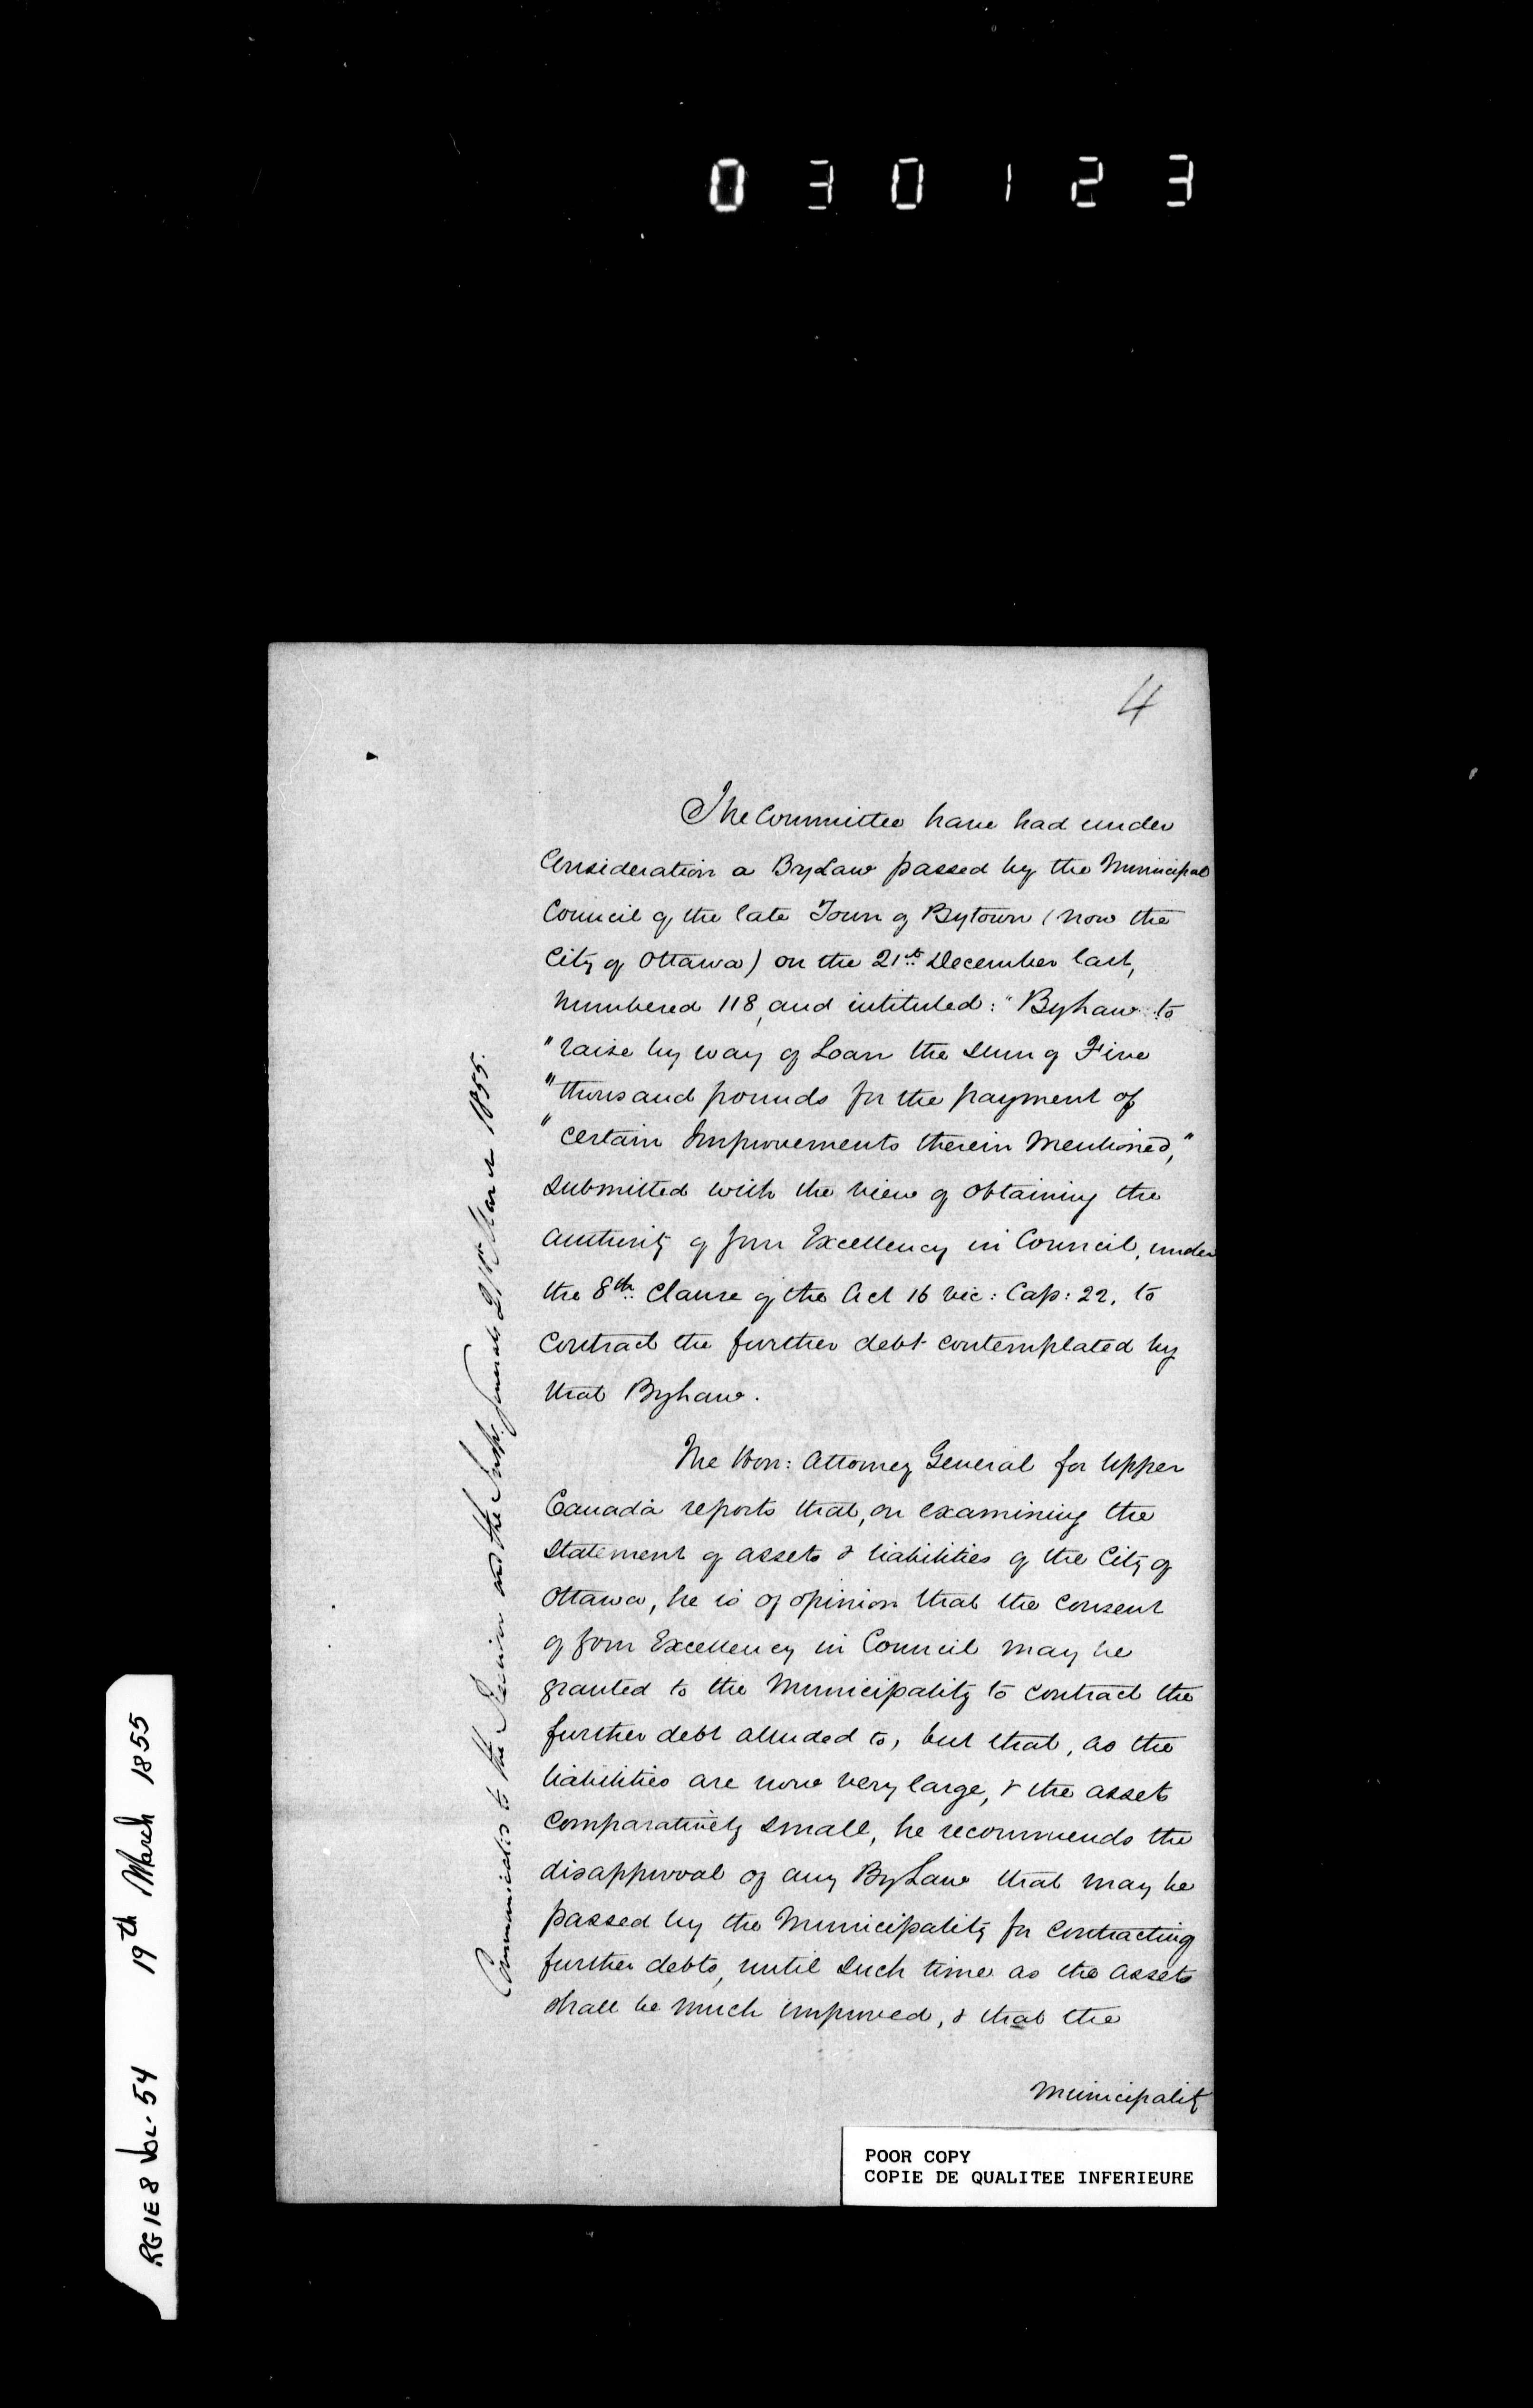 030123
4
The Committee have had under
Consideration a ByLaw passed by the Municipal
Council of the late Town of Bytown (now the
City of Ottawa) on the 21st December last,
numbered 118, and intituled: "ByLaw to
"raise by way of Loan the Sum of Five
"thousand pounds for the payment of
"certain Improvements therein mentioned,"
submitted with the view of obtaining the
authority of Your Excellency in Council, under
the 8th Clause of the Act 16 Vic: Cap: 22, to
contract the further debt contemplated by
that ByLaw.
The Hon: Attorney General for Upper
Canada reports that, on examining the
Statement of assets & liabilities of the City of
Ottawa, he is of opinion that the Consent
of Your Excellency in Council may be
granted to the Municipality to contract the
further debt alluded to, but that, as the
liabilities are now very large, & the assets
comparatively small, he recommends the
disapproval of any ByLaw that may be
passed by the Municipality for contracting
further debts, until such time as the assets
shall be much improved, & that the
Municipality
Communicated to the and the Insp. General 21st March 1855.
RG1E8 Vol. 54 19th March 1855
POOR COPY
COPIE DE QUALITEE INFERIEURE